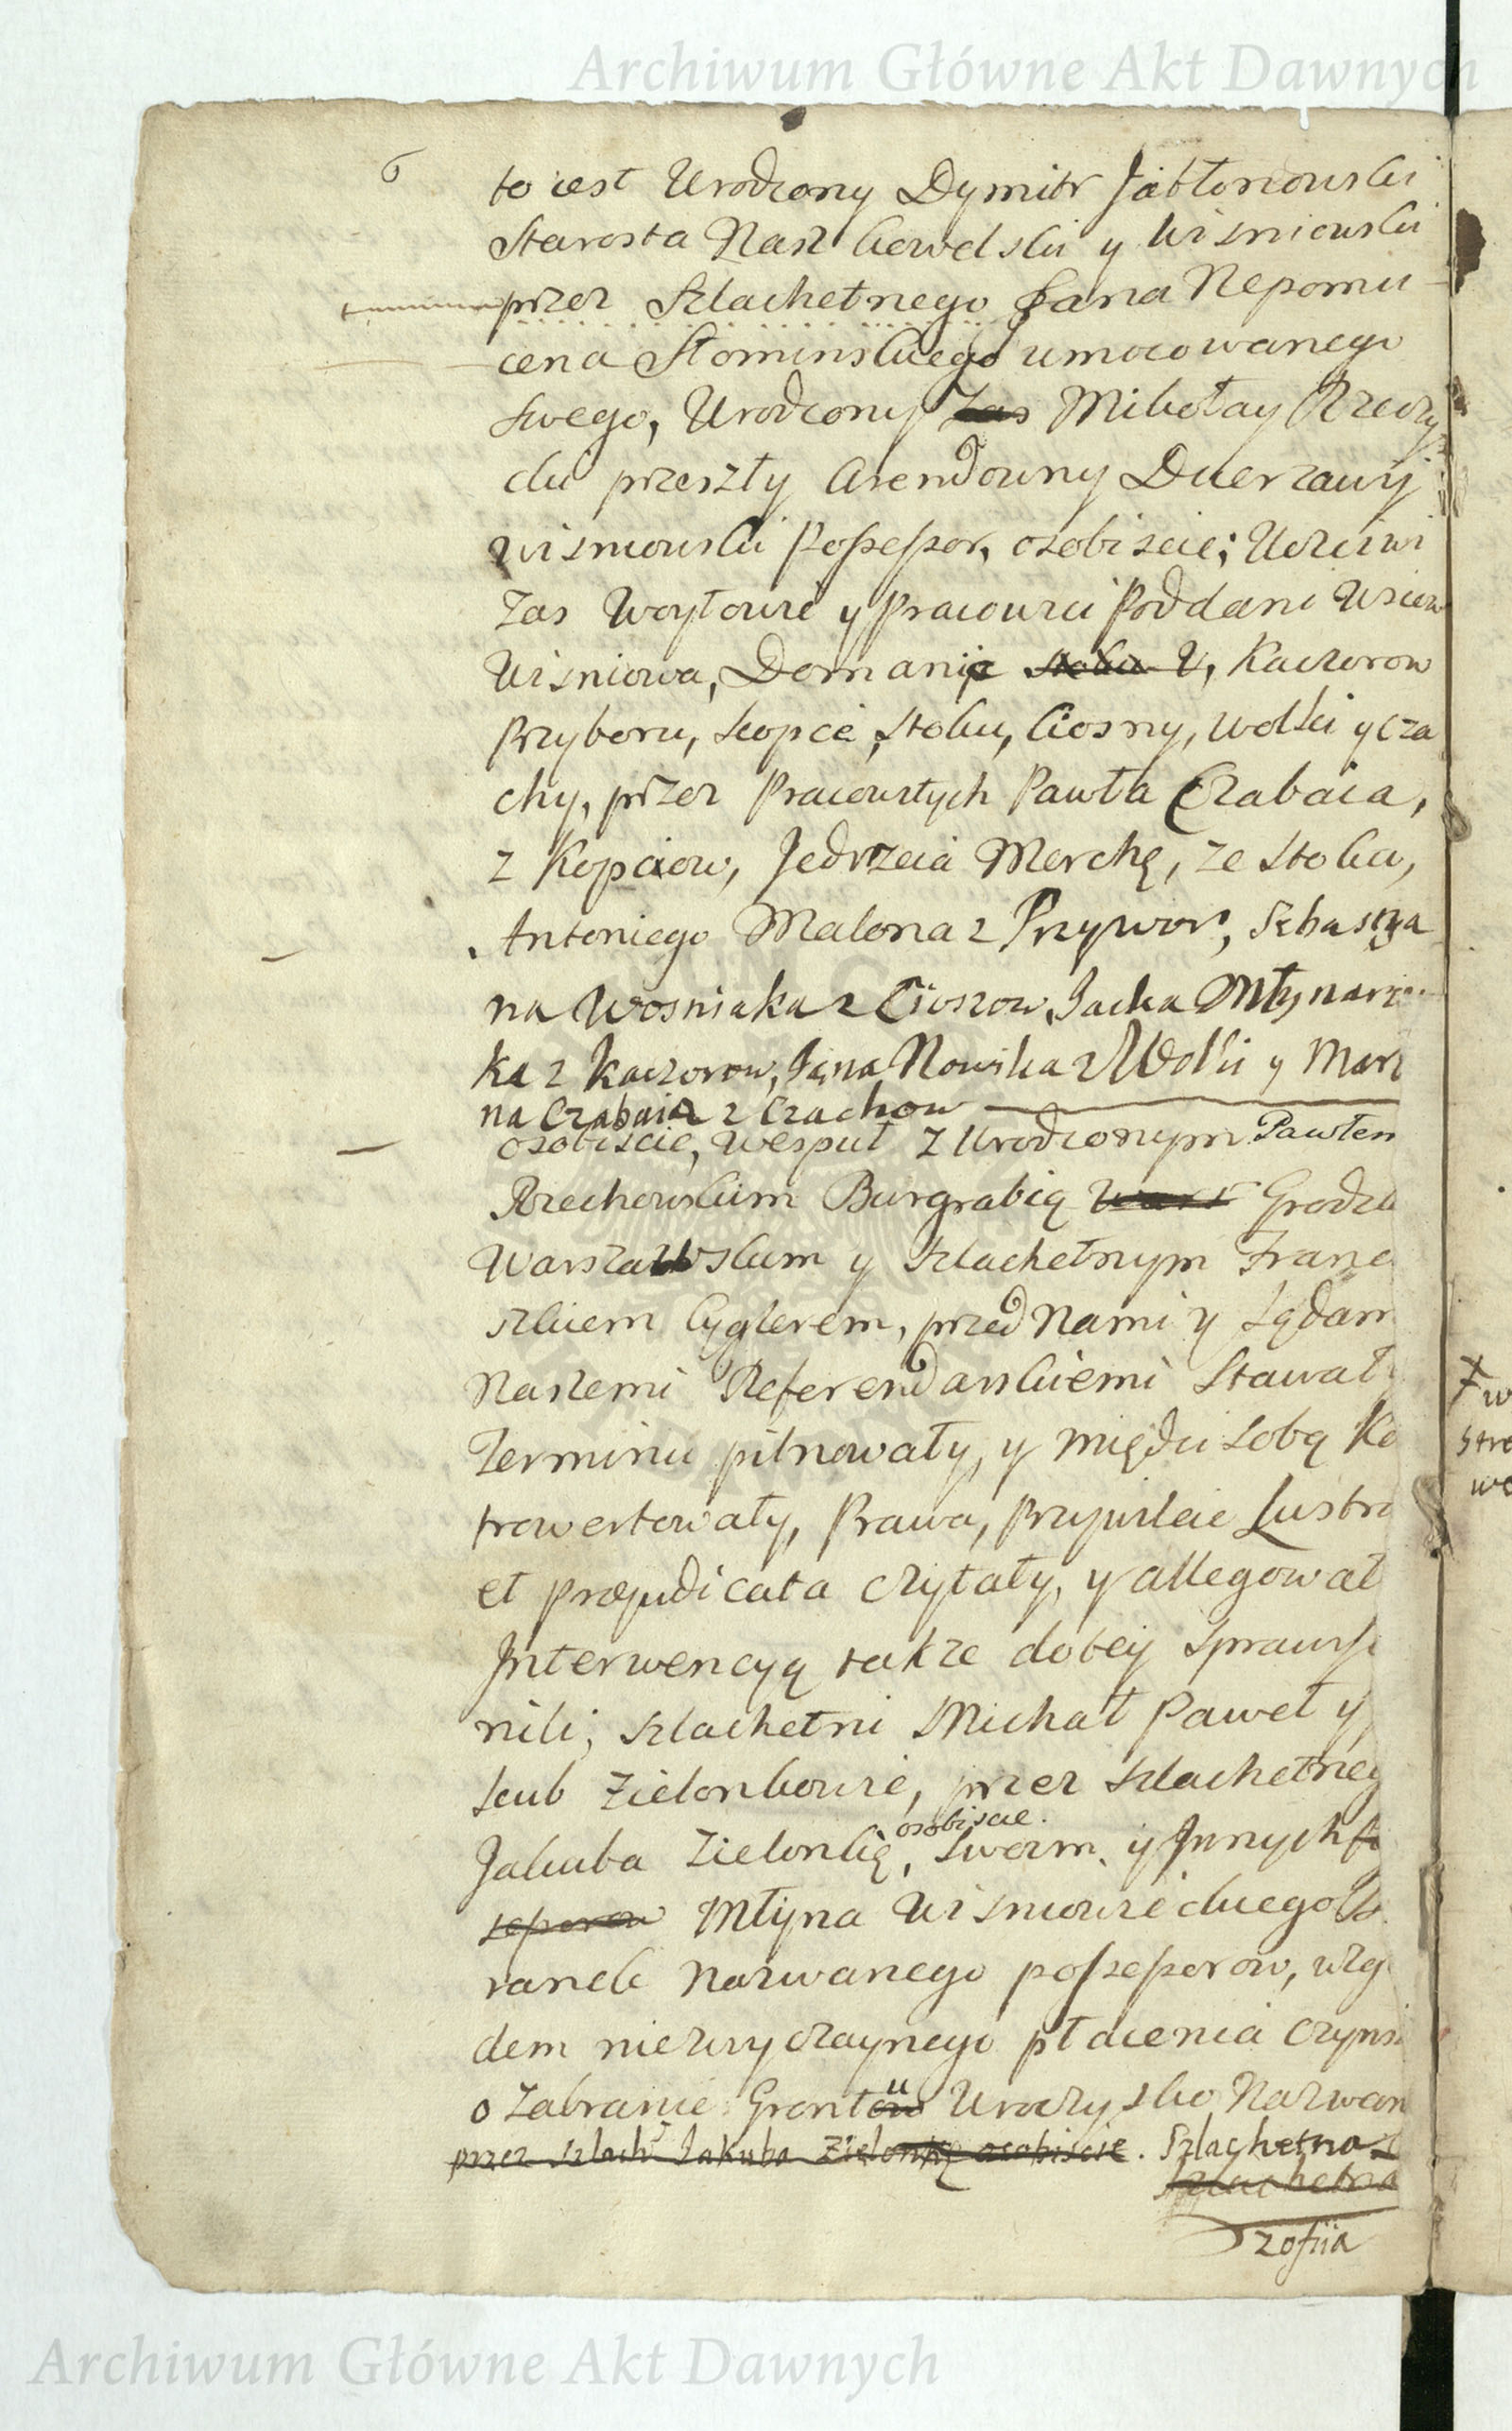 Archiwum Główne Akt Dawnych
6
to iest Urodzony Dymitr Jabłonowski
Starosta Nasz Kowelski y Wisniowski
przez Szlachetnego Jana Nepomu
cena Słominskiego umocowanego
swego, Urodzony zas Mikołay Rzeczy
cki przeszły Arendowny Dzierzawy
Wisniowski Possessor, osobiscie; Uczciwi
Zas Woytowie y Pracowici Poddani Wsiow
Wisniowa, Domanie Kaczorow
Przyboru, Kopcie, Stoku, Ciosny, Wolki y Cza
chy, przez Pracowitych Pawła Czabaia,
z Kopciow, Jedrzeia Merchę, ze Stoku,
Antoniego Malona z Przywor, Sebastya
na Wosniaka z Cioszow, Jacka Młynarz
ka z Kaczorow, Jana Nowika z Wolki y Marz
na Czabaia z Czachow
osobiscie, wespuł z Urodzonym Pawłem
Rzechowskim Burgrabią Grodzu
Warszawskim y Szlachetnym Franc
szkiem Cyglerem, przed Nami y Sądam
Naszemi Referendarskiemi Stawały
Terminu pilnowały, y między sobą Ko
trowertowały, Prawa, Przywileie Lustra
et præjudicata czytały, y allegował
Interwencyą także do tey sprawy
nili, szlachetni Michał Paweł y
kub Zielonkowie, przez szlachetneg
osobiscie.
Jakuba Zielonkę, Swoim y Innych
seporow Młyna Wisniowieckiego
ranek Nazwanego possessorow, wzg
dem niezwyczaynego płacenia czyns
o Zabranie Grontow Uroczysko Nazwan
u
przez Szlach Jakuba Zielonkę osobiscie. Szlachetna
Szlachetna
Zofiia
w
stro
we
Archiwum Główne Akt Dawnych